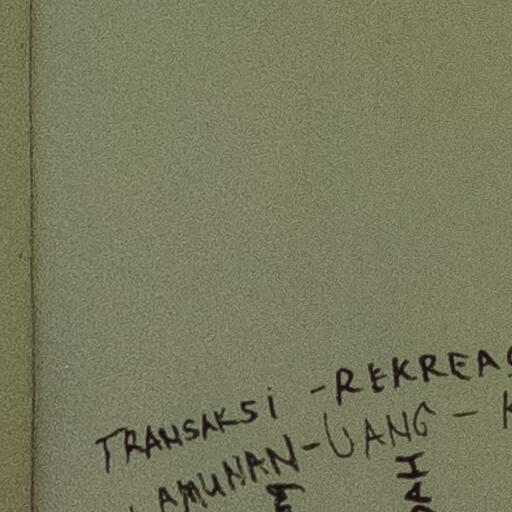 TRANSAKSI - REKREAS
LAMUNAN - UANG - K